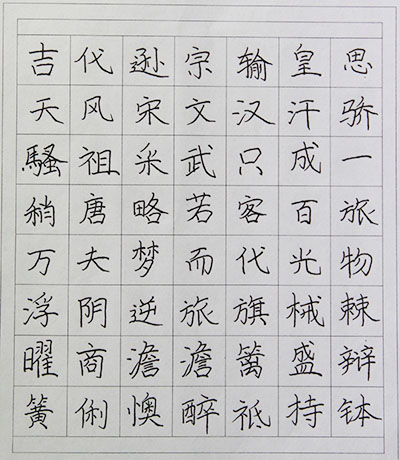 吉代遜宗输皇思
天风宋文汉汗骄
騷祖采武只成一
稍唐略若客百旅
万夫梦而代光物
浮阴逆旅旗械棘
曜商澹澹篙盛辩
簧俐懊醉祗持钵